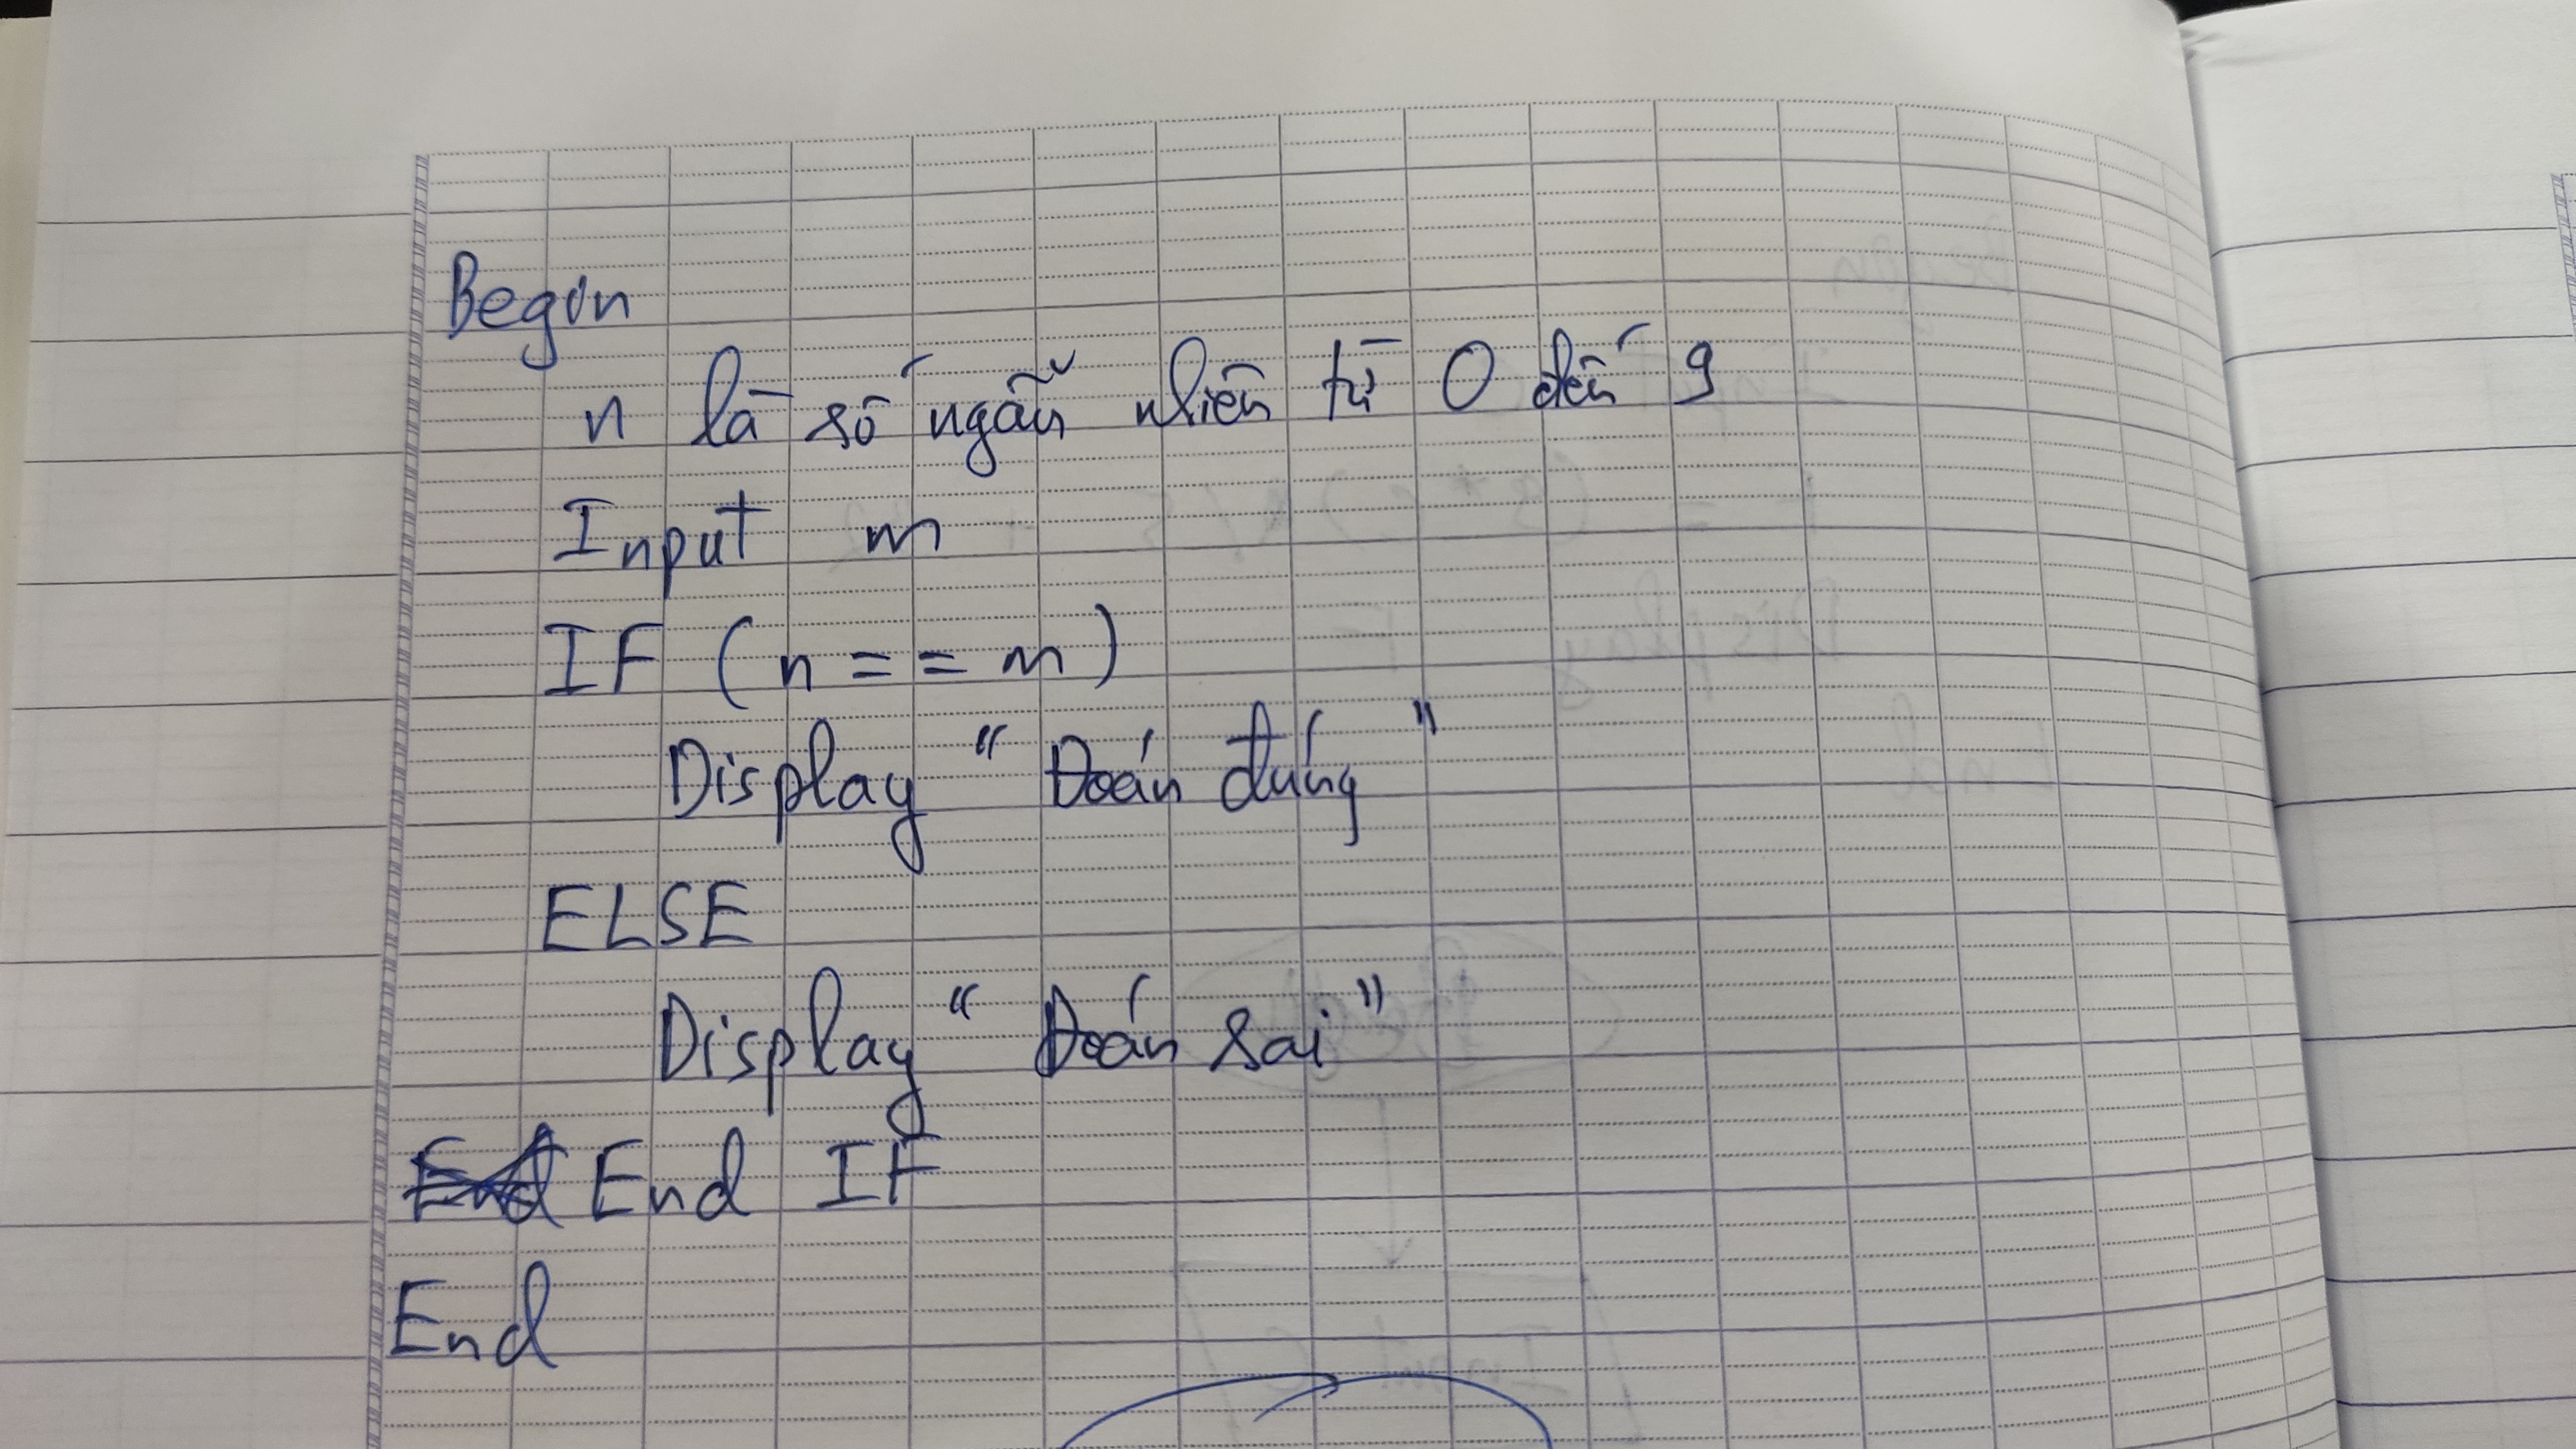 Begin
n là số ngẫu nhiên từ 0 đến 9
Input m
IF (n == m)
Display " Đoán đúng "
ELSE
Display " Đoán sai "
End IF
End